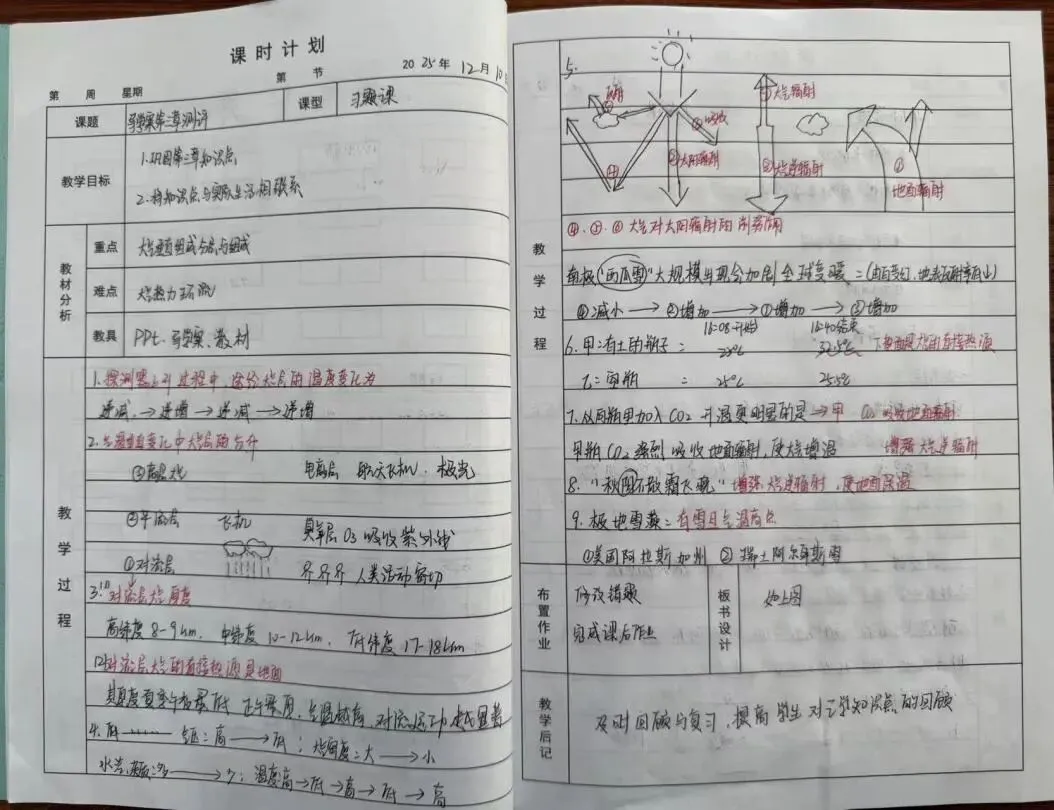 课时计划
第 周 星期 第 节 2025年12月10日
课题 导学案第三章测评 课型 习题课
教学目标
1.巩固第三章知识点
2.将知识点与实际生活相联系
教材分析
重点 大气垂直组成分层与组成
难点 大气热力环流
教具 PPt.导学案.教材
教学过程
1.探测器上升过程中,途经大气层的温度变化为
递减→递增→递减→递增
2.气温垂直变化中大气层的分升
③高层大气 电离层 航天飞机.极光
②平流层 飞机 臭氧层O3吸收紫外线
①对流层 人类活动密切
3.(1)对流层大气厚度
高纬度8-9km. 中纬度10-12km. 低纬度17-18km
(2)对流层大气的直接热源是地面
其厚度夏季 正午 气温越高,对流运动越显著
4.低…… 气压:高→低;大气密度:大→小
水汽、 :多→少;温度高→低→高→低→高
教学过程
5.
①大气辐射
⑤吸收
②太阳辐射
③大气逆辐射
④
①
地面辐射
④.⑤.⑥大气对太阳辐射的削弱作用
南极"西瓜雪"大规模出现会加剧全球变暖:(由白变红,地表反射率减小)
④减小→②增加→①增加→③增加
16:08开始 16:40结束
6.甲:有土的瓶子: 25℃ 32.5℃ 下垫面是大气的直接热源
乙:空瓶 : 25℃ 25.5℃
7.从两瓶里加入CO2升温更明显的是→甲 CO2吸收地面辐射
甲瓶CO2强烈吸收地面辐射,使大气增温 增强大气逆辐射
8."秋阴不散霜飞晚"增强大气逆辐射,使地面保温
9.极地雪藻:有雪且气温高点
①美国阿拉斯加州 ②瑞士阿尔卑斯雪
布置作业
修改错题
完成课后作业
板书设计
如上图
教学后记
及时回顾与复习,提高学生对已学知识点的回顾